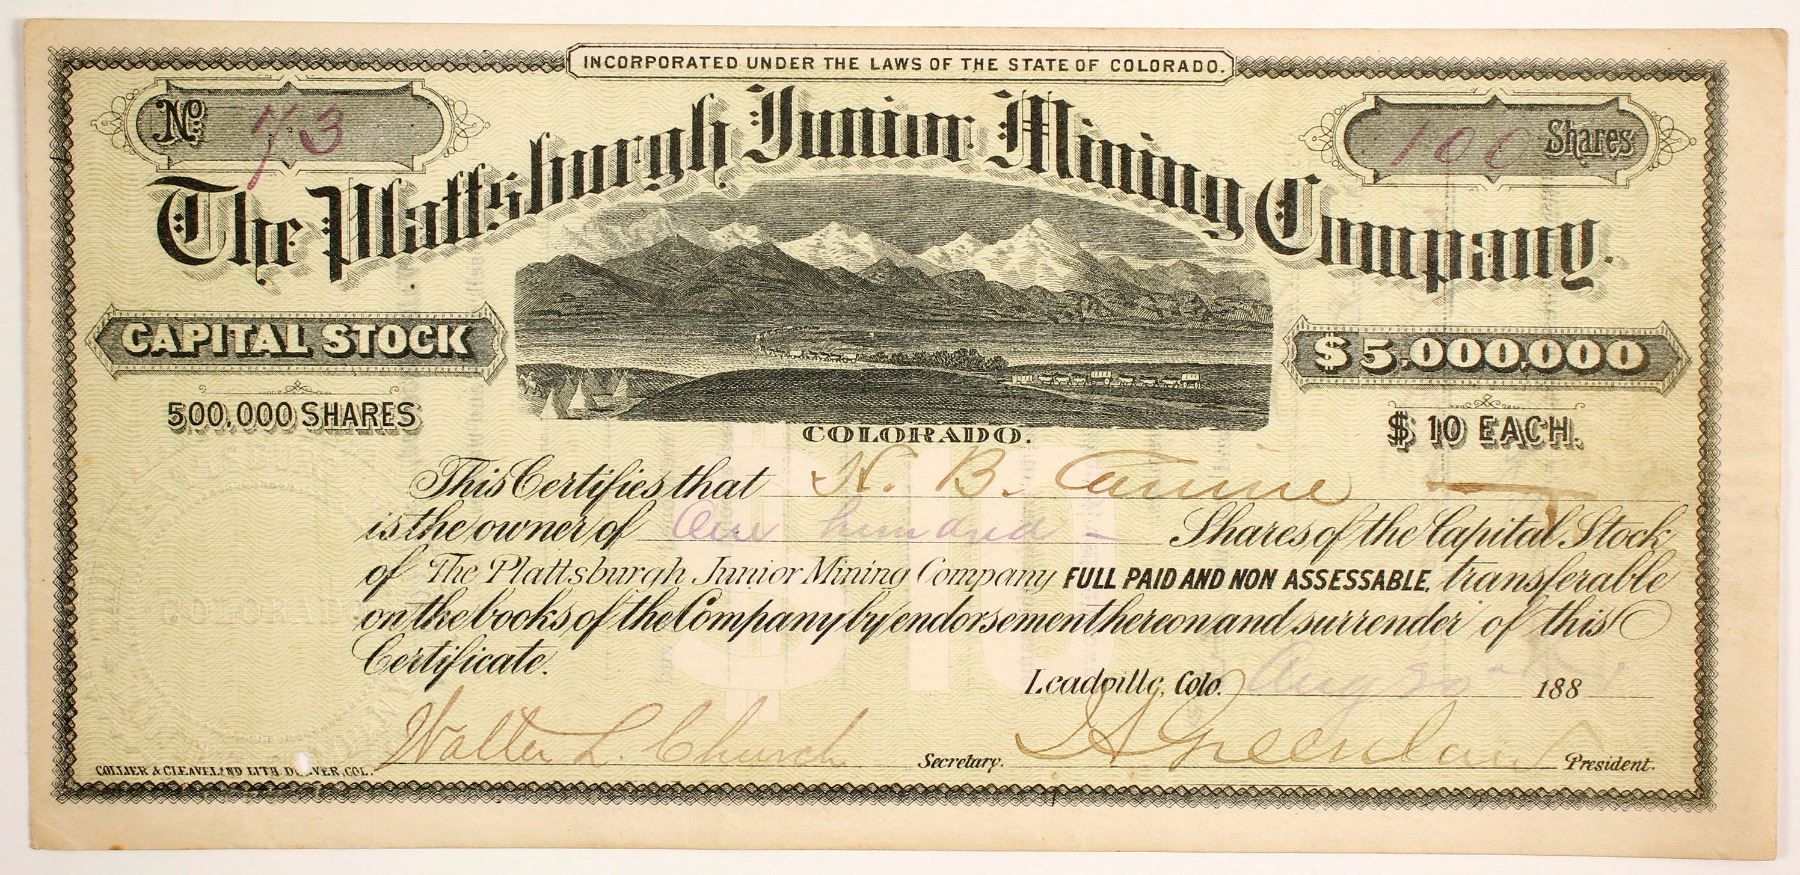 INCORPORATED UNDER THE LAWS OF THE STATE OF COLORADO.
No. 73
100 Shares
The Plattsburgh Junior Mining Company.
CAPITAL STOCK
$5,000,000
500,000 SHARES
$10 EACH.
COLORADO.
This Certifies that H. B.
is the owner of One hundred - Shares of the Capital Stock
of The Plattsburgh Junior Mining Company FULL PAID AND NON ASSESSABLE, transferable
on the books of the Company by endorsement hereon and surrender of this
Certificate.
Leadville, Colo. Aug 20 188
Walter L. Church Secretary. President.
COLLIER & CLEAVELAND LITH. DENVER, COL.
$10
COLORADO